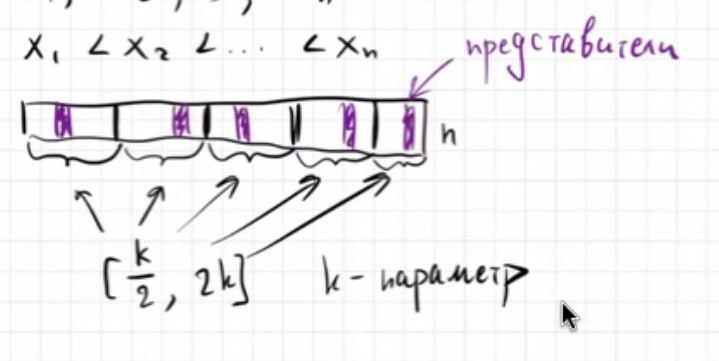 x₁ < x₂ < ... < xₙ
представители
n
[k/2, 2k] k - параметр